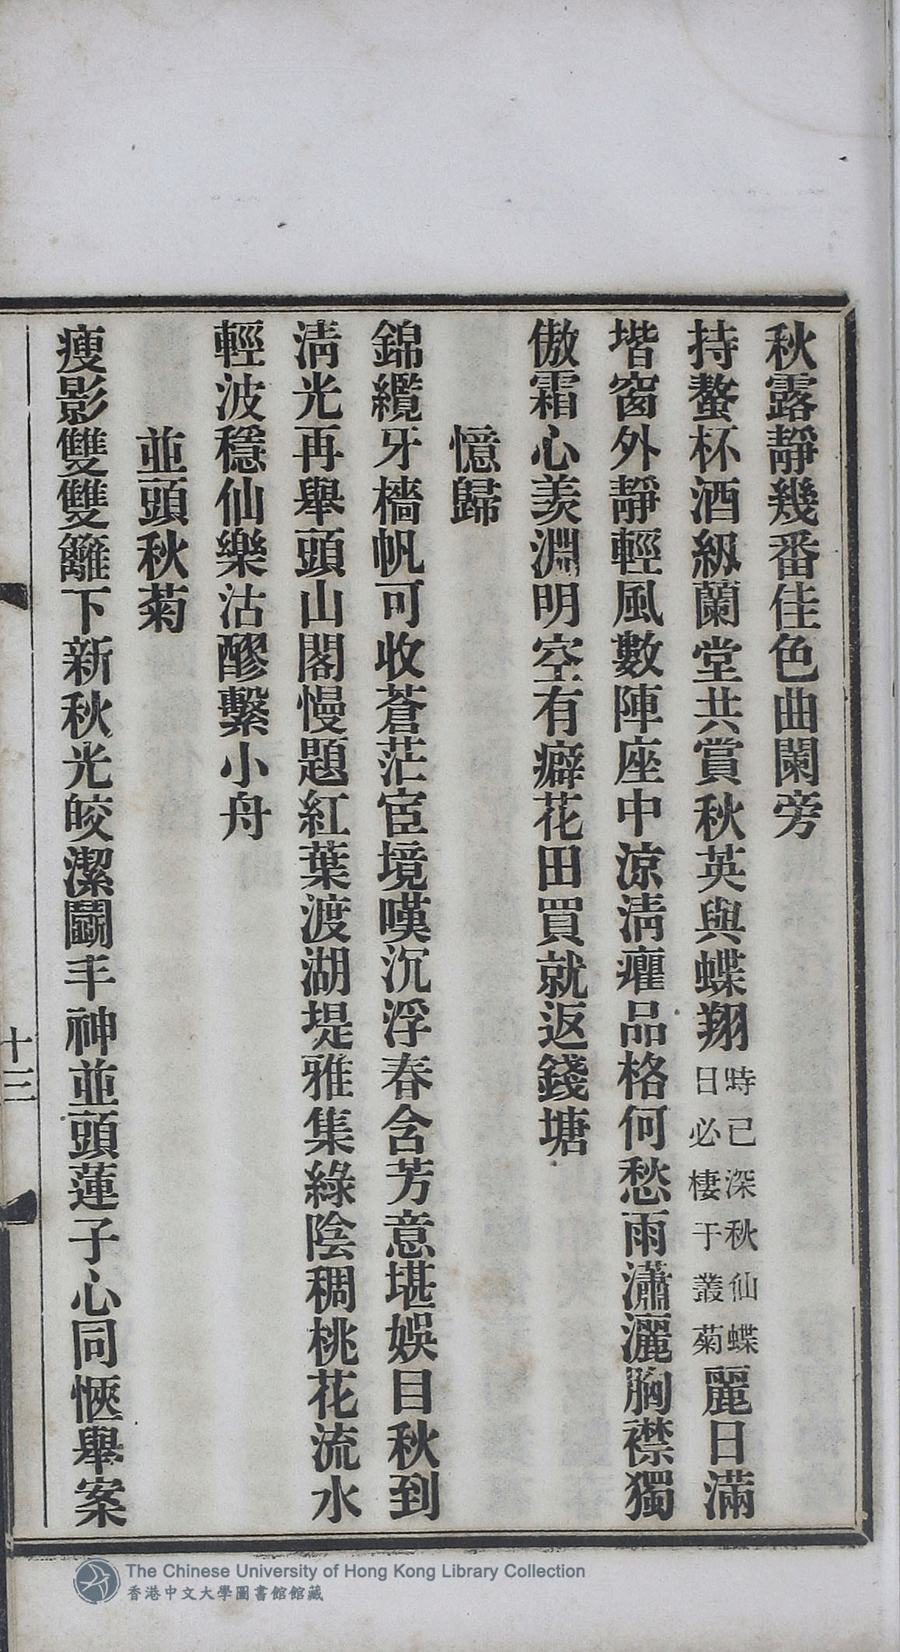 秋露靜幾番佳色曲闌旁
持螯杯酒級蘭堂共賞秋英與蝶翔時已深秋仙蝶日必棲于叢菊麗日滿
堦窗外靜輕風數陣座中涼清癯品格何愁雨瀟灑胸襟獨
傲霜心羡淵明空有癖花田買就返錢塘
憶歸
錦纜牙檣帆可收蒼茫宦境嘆沉浮春含芳意堪娛目秋到
淸光再舉頭山閣慢題紅葉渡湖堤雅集綠陰稠桃花流水
輕波穩仙樂沽醪繫小舟
並頭秋菊
瘦影雙雙籬下新秋光皎潔鬭丰神並頭蓮子心同愜舉案
十三
The Chinese University of Hong Kong Library Collection
香港中文大學圖書館館藏